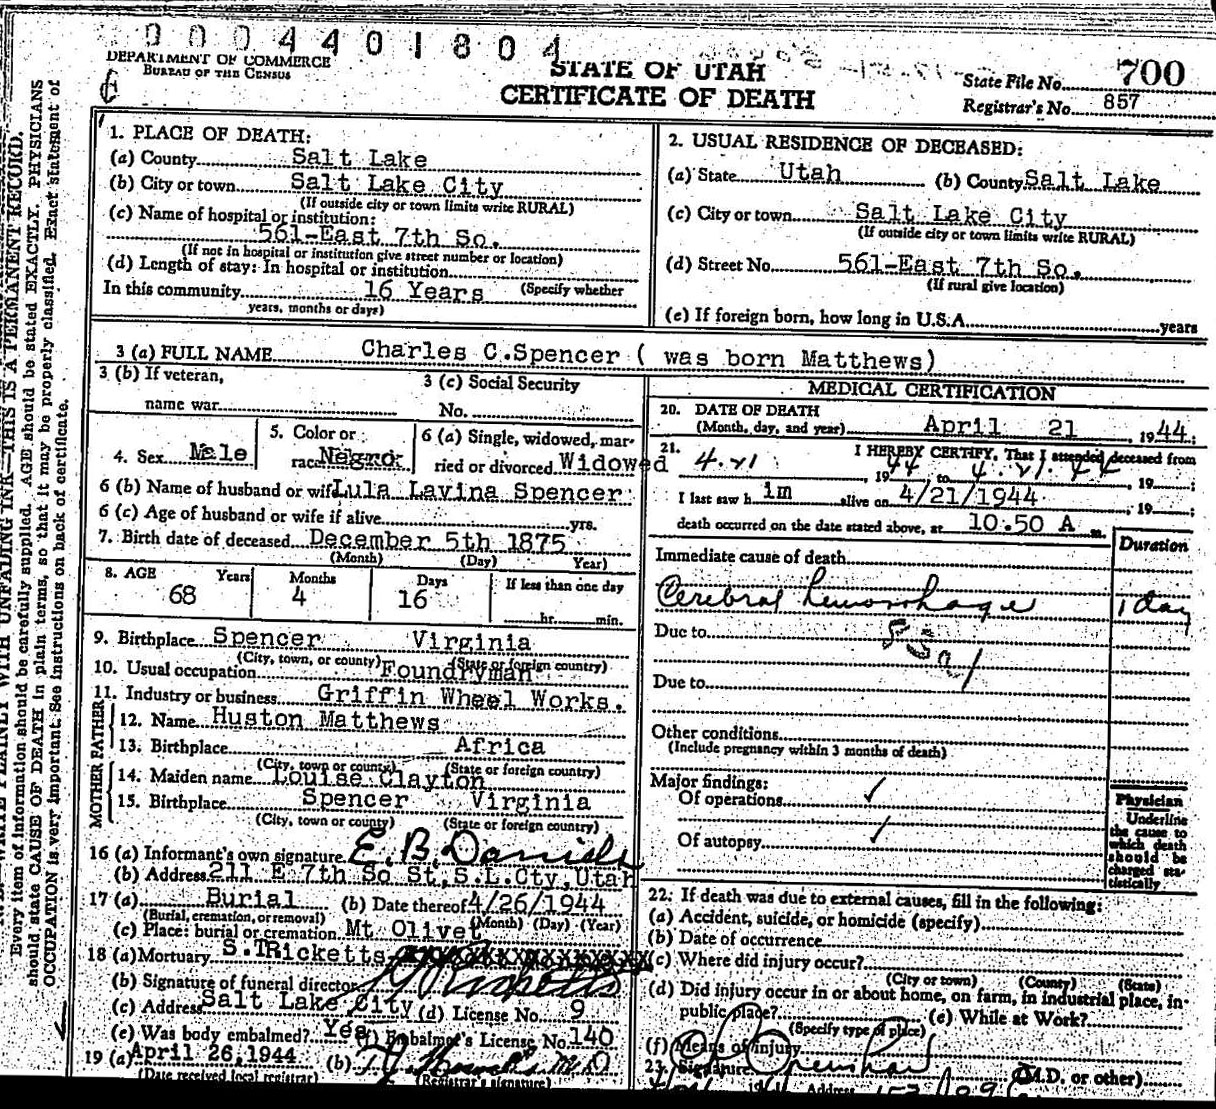 0004401804
DEPARTMENT OF COMMERCE
BUREAU OF THE CENSUS
STATE OF UTAH
CERTIFICATE OF DEATH
State File No. 700
Registrar's No. 857
1. PLACE OF DEATH:
(a) County Salt Lake
(b) City or town Salt Lake City
(If outside city or town limits write RURAL)
(c) Name of hospital or institution:
561-East 7th So.
(If not in hospital or institution give street number or location)
(d) Length of stay: In hospital or institution
In this community 16 Years (Specify whether
years, months or days)
2. USUAL RESIDENCE OF DECEASED:
(a) State Utah (b) County Salt Lake
(c) City or town Salt Lake City
(If outside city or town limits write RURAL)
(d) Street No. 561-East 7th So.
(If rural give location)
(e) If foreign born, how long in U.S.A. years
3 (a) FULL NAME Charles C.Spencer ( was born Matthews)
3 (b) If veteran,
name war
3 (c) Social Security
No.
4. Sex Male
5. Color or
race Negro
6 (a) Single, widowed, mar-
ried or divorced. Widowed
6 (b) Name of husband or wife Lula Lavina Spencer
6 (c) Age of husband or wife if alive yrs.
7. Birth date of deceased December 5th 1875
(Month) (Day) Year)
8. AGE Years Months Days If less than one day
68 4 16 hr. min.
9. Birthplace Spencer Virginia
(City, town, or county) (State or foreign country)
10. Usual occupation Foundryman
11. Industry or business Griffin Wheel Works.
FATHER
12. Name Huston Matthews
13. Birthplace Africa
(City, town or county) (State or foreign country)
MOTHER
14. Maiden name Louise Clayton
15. Birthplace Spencer Virginia
(City, town or county) (State or foreign country)
16 (a) Informant's own signature E.B. Daniels
(b) Address 211 E 7th So St, S.L.Cty, Utah
17 (a) Burial (b) Date thereof 4/26/1944
(Burial, cremation, or removal) (Month) (Day) (Year)
(c) Place: burial or cremation Mt Olivet
18 (a) Mortuary S.T Ricketts
(b) Signature of funeral director Ricketts
(c) Address Salt Lake City (d) License No. 9
(e) Was body embalmed? Yes (f) Embalmer's License No. 140
19 (a) April 26, 1944 (b) M.D
(Date received local registrar) (Registrar's signature)
MEDICAL CERTIFICATION
20. DATE OF DEATH
(Month, day, and year) April 21, 1944
21. I HEREBY CERTIFY, That I attended deceased from
4.21, 1944 to 4.21.44, 19
I last saw h im alive on 4/21/1944, 19
death occurred on the date stated above, at 10.50 A m.
Duration
Immediate cause of death
Cerebral hemorrhage 1 day
Due to
Due to
Other conditions
(Include pregnancy within 3 months of death)
Major findings:
Of operations ✓
Of autopsy ✓
Physician
Underline
the cause to
which death
should be
charged sta-
tistically
22. If death was due to external causes, fill in the following:
(a) Accident, suicide, or homicide (specify)
(b) Date of occurrence
(c) Where did injury occur?
(City or town) (County) (State)
(d) Did injury occur in or about home, on farm, in industrial place, in
public place? (e) While at Work?
(Specify type of place)
(f) Means of injury
23. Signature (M.D. or other)
Address
WRITE PLAINLY WITH UNFADING INK—THIS IS A PERMANENT RECORD.
Every item of information should be carefully supplied. AGE should be stated EXACTLY. PHYSICIANS
should state CAUSE OF DEATH in plain terms, so that it may be properly classified. Exact statement of
OCCUPATION is very important. See instructions on back of certificate.